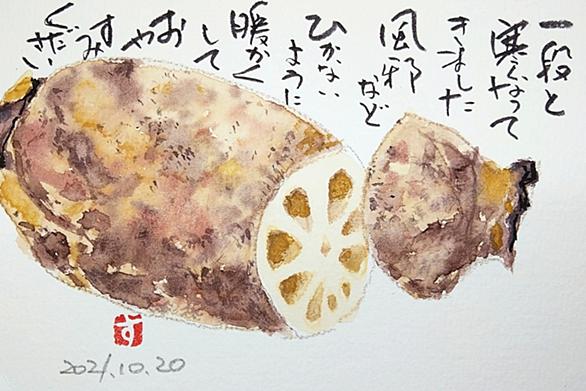 一段と
寒くなって
きました
風邪
など
ひかない
ように
暖かく
して
おや
すみ
ください
す
2021.10.20